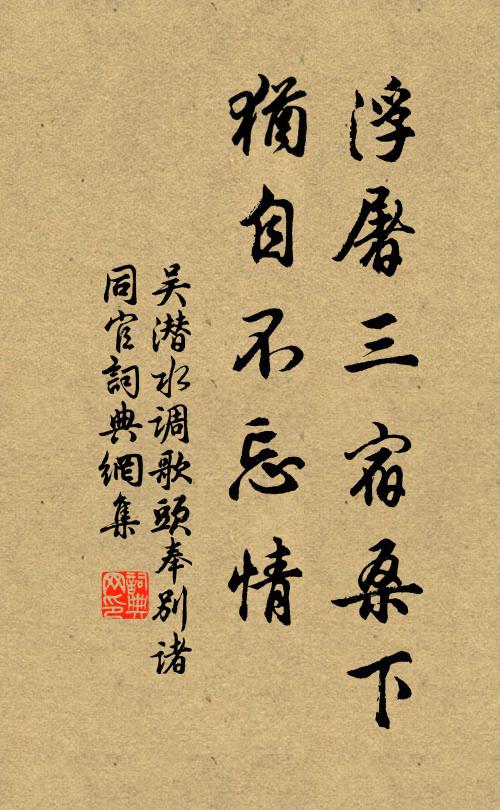 浮屠三宿桑下
猶自不忘情
吴潜水调歌頭奉别诸
同官詞典網集
詞典网印